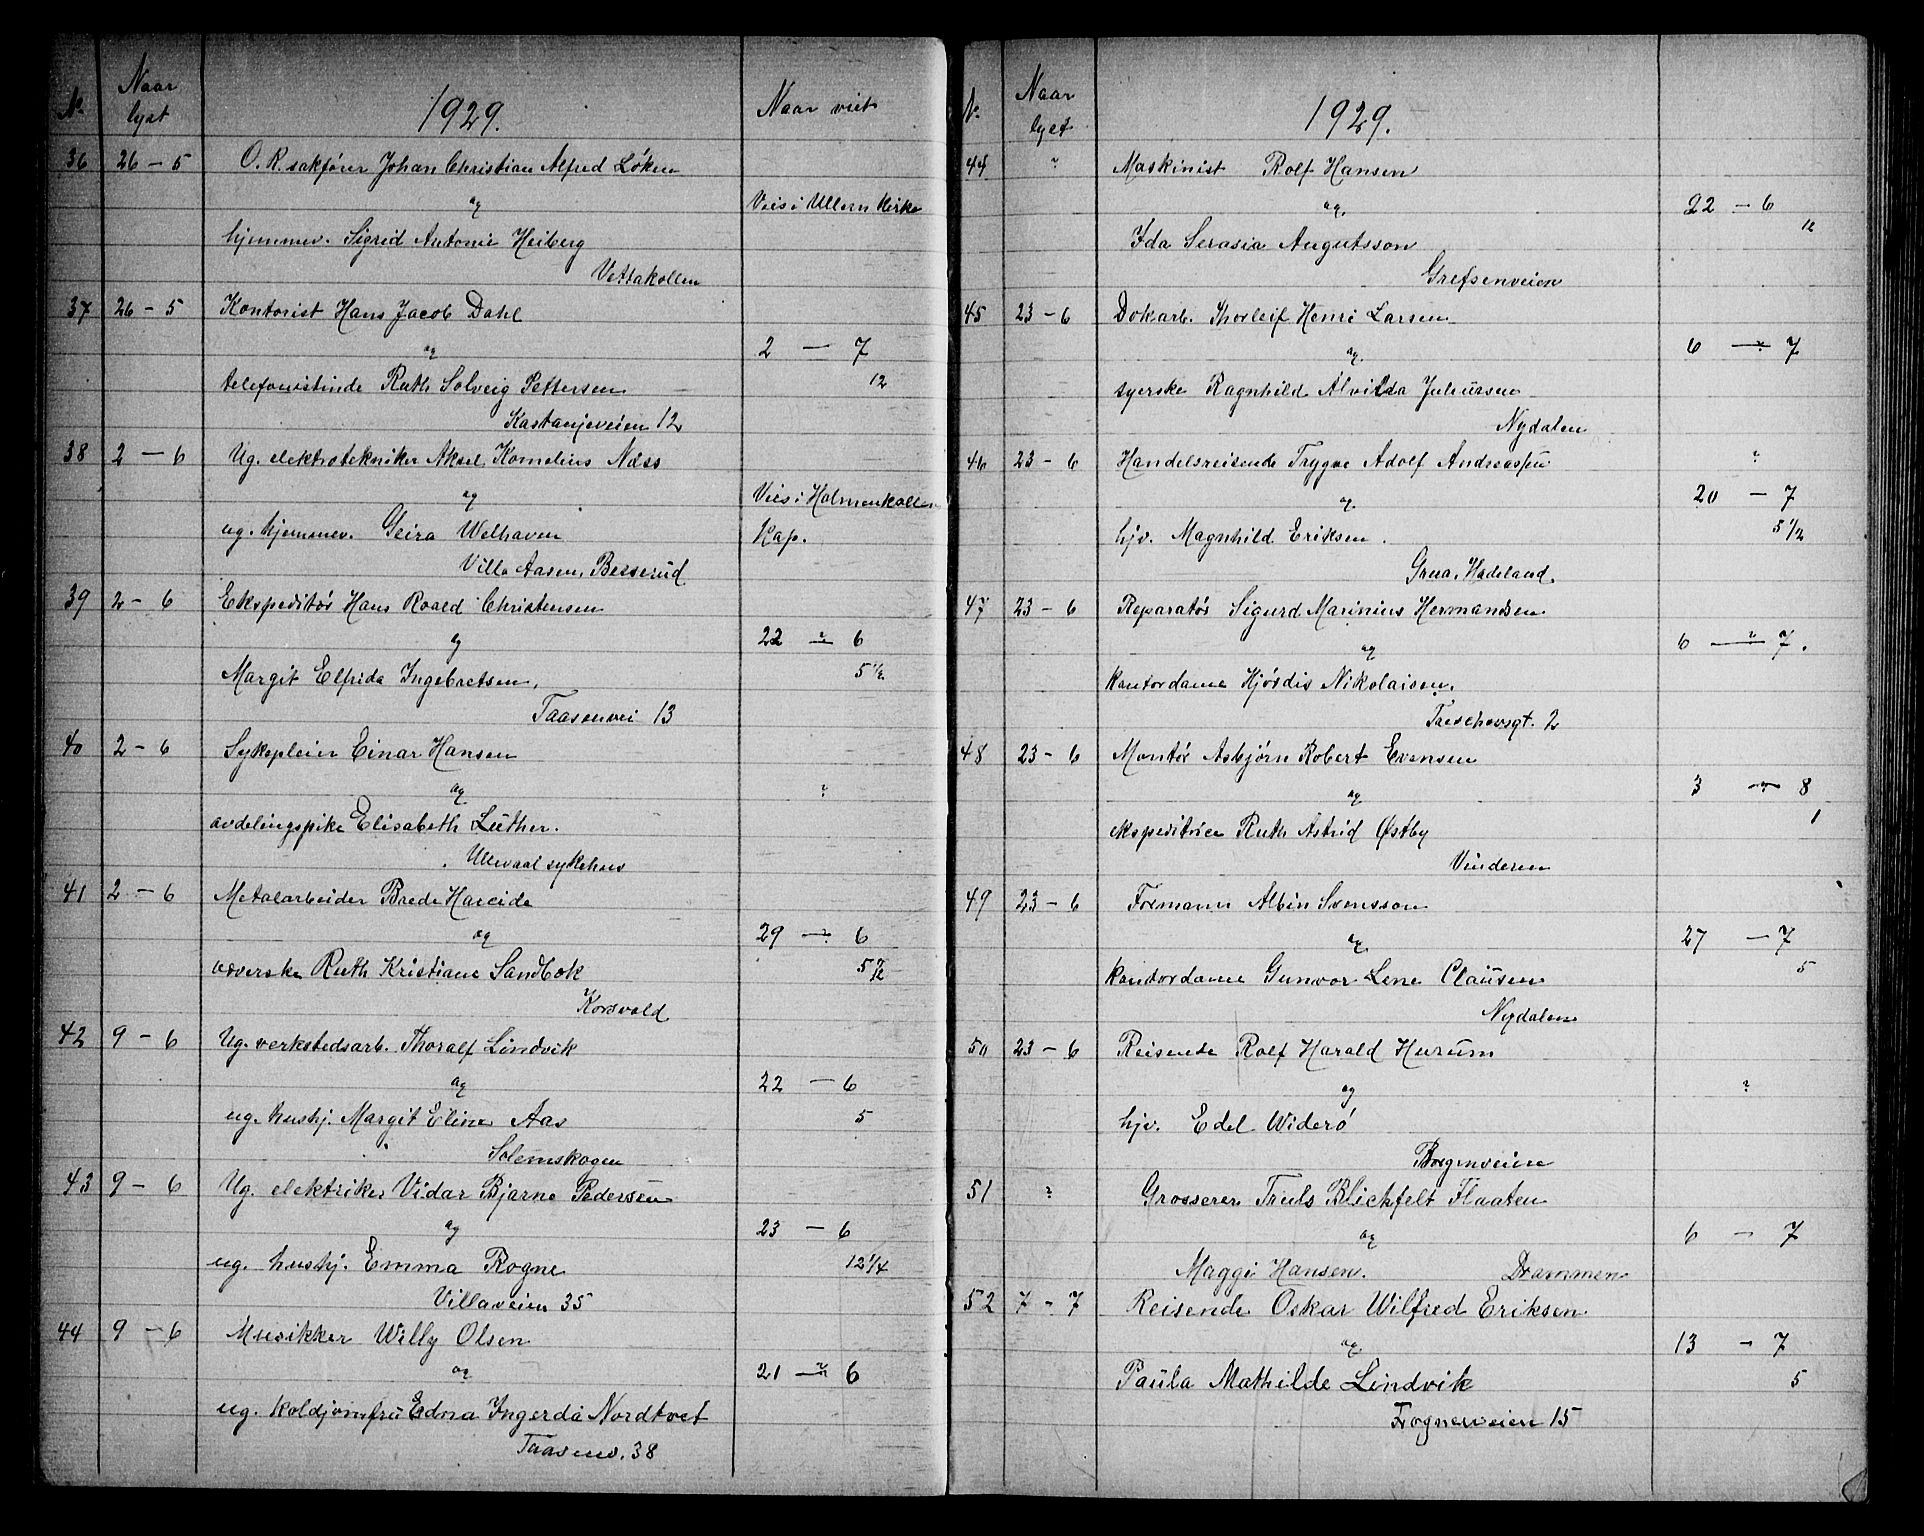 No. Naar lyst 1929. Naar viet
36 26 - 5 O. R. sakfører Johan Christian Alfred Løken
og Vies i Ullern Kirke
hjemmev. Sigrid Antonie Heiberg
Vettakollen
37 26 - 5 Kontorist Hans Jacob Dahl
og 2 — 7
telefonistinde Ruth Solveig Pettersen 12
Kastanjeveien 12
38 2 - 6 Ug. elektrotekniker Aksel Kornelius Næss
og Vies i Holmenkollen
ug. hjemmev. Geira Welhaven Kap.
Villa Aasen, Besserud
39 2 - 6 Ekspeditør Hans Roald Christensen
og 22 — 6
Margit Elfrida Ingebretsen, 5 1/2
Taasenvei 13
40 2 - 6 Sykepleier Einar Hansen
og ?
avdelingspike Elisabeth Luther.
Ullevaal sykehus
41 2 - 6 Metalarbeider Hareide
og 29 — 6
væverske Ruth Kristiane Sandbok 5 1/2
Korsvold
42 9 - 6 Ug. verkstedsarb. Thoralf Lindvik
og 22 - 6
ug. hushj. Margit Eline Aas 5
Solemskogen
43 9 - 6 Ug. elektriker Vidar Bjarne Pedersen
og 23 - 6
ug. hushj. Emma Rogne 12 1/4
Villaveien 35
44 9 - 6 Musikker Willy Olsen
og 21 — 6
ug. koldjomfru Edna Ingerda Nordtvet
Taasenv. 38
No. Naar lyst 1929.
44 ? Maskinist Rolf Hansen
og 22 - 6
Ida Serasia Augutsson 12
Grefsenveien
45 23 - 6 Dokarb. Thorleif Henri Larsen
og 6 — 7
syerske Ragnhild Alvilda Juliussen
Nydalen
46 23 - 6 Handelsreisende Trygve Adolf Andreassen ?
og 20 - 7
hjv. Magnhild Eriksen. 5 1/2
Grua, Hadeland.
47 23 - 6 Reparatør Sigurd Marinius Hermandsen
og 6 — 7.
kontordame Hjørdis Nikolaisen.
2
48 23 - 6 Montør Asbjørn Robert Evensen
og 3 — 8
ekspeditrice Ruth Astrid Østby 1
Vinderen
49 23 - 6 Formann Albin Svensson
og 27 - 7
kontordame Gunvor Lene Clausen 5
Nydalen
50 23 - 6 Reisende Rolf Harald Hurum
og ?
hjv. Edel Widerø
Borgenveien
51 ? Grosserer Truls Blickfelt Flaaten
og 6 - 7
Maggi Hansen. Drammen
52 7 - 7 Reisende Oskar Wilfred Eriksen
og 13 - 7
Paula Mathilde Lindvik 5
Frognerveien 15